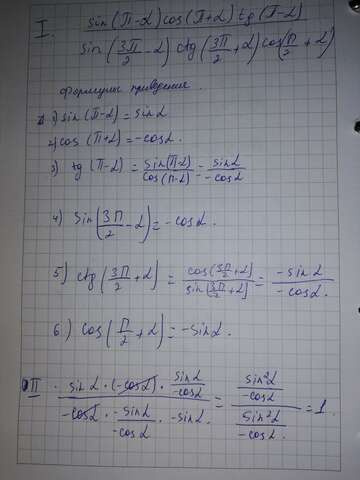 I. sin(π-α)cos(π+α)tg(π-α)
sin(3π/2-α) ctg(3π/2+α) cos(π/2+α)
Формулы приведения.
1) sin(π-α)=sinα
2) cos(π+α)=-cosα.
3) tg(π-α)=sin(π-α)/cos(π-α)=sinα/-cosα
4) sin(3π/2-α)=-cosα.
5) ctg(3π/2+α)=cos(3π/2+α)/sin(3π/2+α)=-sinα/-cosα.
6) cos(π/2+α)=-sinα.
II. sinα·(-cosα)·sinα/-cosα / -cosα·-sinα/-cosα·-sinα = sin²α/-cosα / sin²α/-cosα. =1.